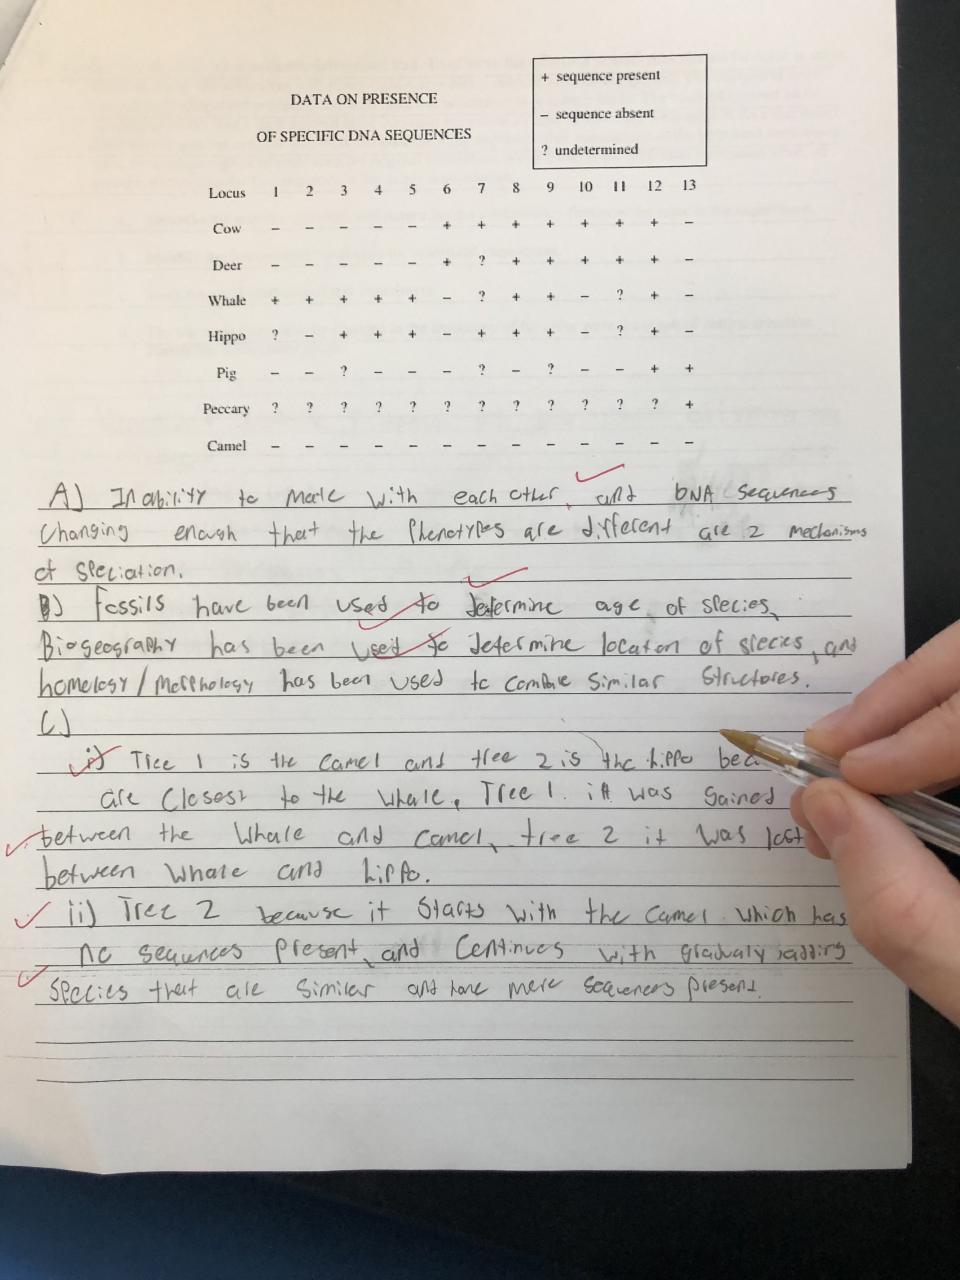 + sequence present
DATA ON PRESENCE
- sequence absent
OF SPECIFIC DNA SEQUENCES
? undetermined
Locus 1 2 3 4 5 6 7 8 9 10 11 12 13
Cow - - - - - + + + + + + + -
Deer - - - - - + ? + + + + + -
Whale + + + + + - ? + + - ? + -
Hippo ? - + + + - + + + - ? + -
Pig - - ? - - - ? - ? - - + +
Peccary ? ? ? ? ? ? ? ? ? ? ? ? +
Camel - - - - - - - - - - - - -
A) Inability to mate with each other, and DNA sequences
changing enough that the phenotypes are different are 2 mechanisms
of speciation.
B) Fossils have been used to determine age of species,
Biogeography has been used to determine location of species, and
homology/morphology has been used to compare similar structures.
C.)
i) Tree 1 is the camel and tree 2 is the hippo
are closest to the whale. Tree 1 it was gained
between the whale and camel, tree 2 it was lost
between whale and hippo.
ii) Tree 2 because it starts with the camel which has
no sequences present, and continues with gradualy adding
species that are similar and have more sequences present.